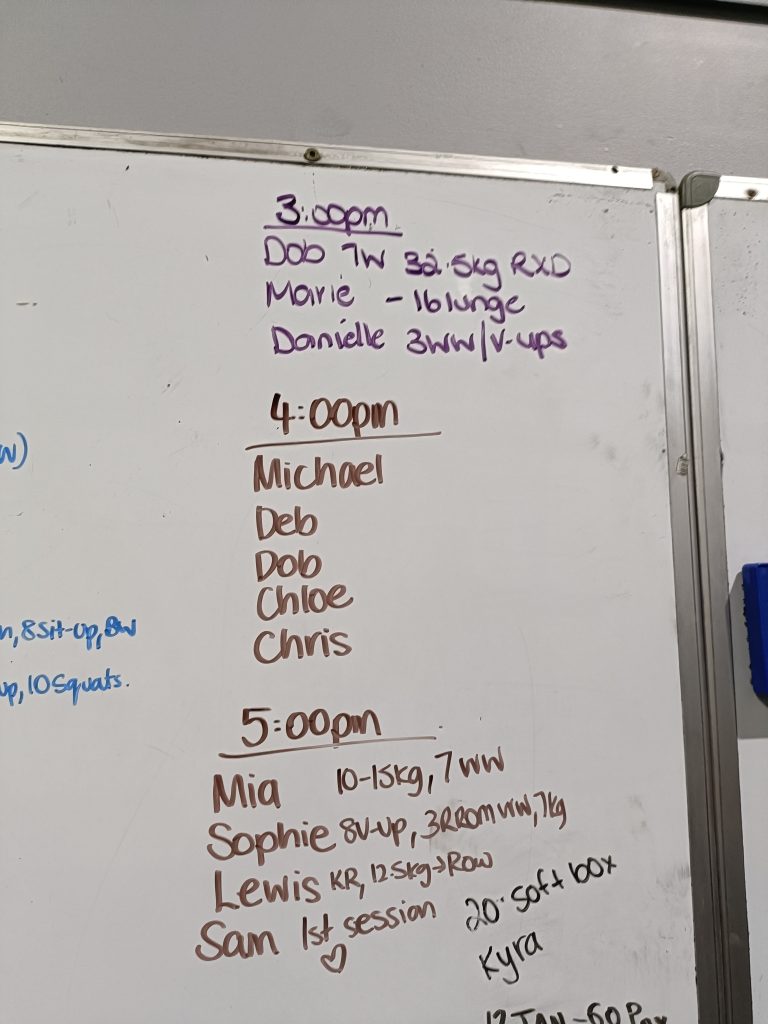 3:00pm
Dob 7W 32.5kg RXD
Marie - 16 lunge
Danielle 3WW/V-ups
4:00pm
Michael
W)
Deb
Dob
Chloe
n, 8 Sit-up, 8W
Chris
up, 10 Squats.
5:00pm
Mia 10-15kg, 7WW
Sophie 8V-up, 3RROM WW, 7kg
Lewis KR, 12.5kg→Row
Sam 1st session ♡
20" soft box
Kyra
12 JAN - 60